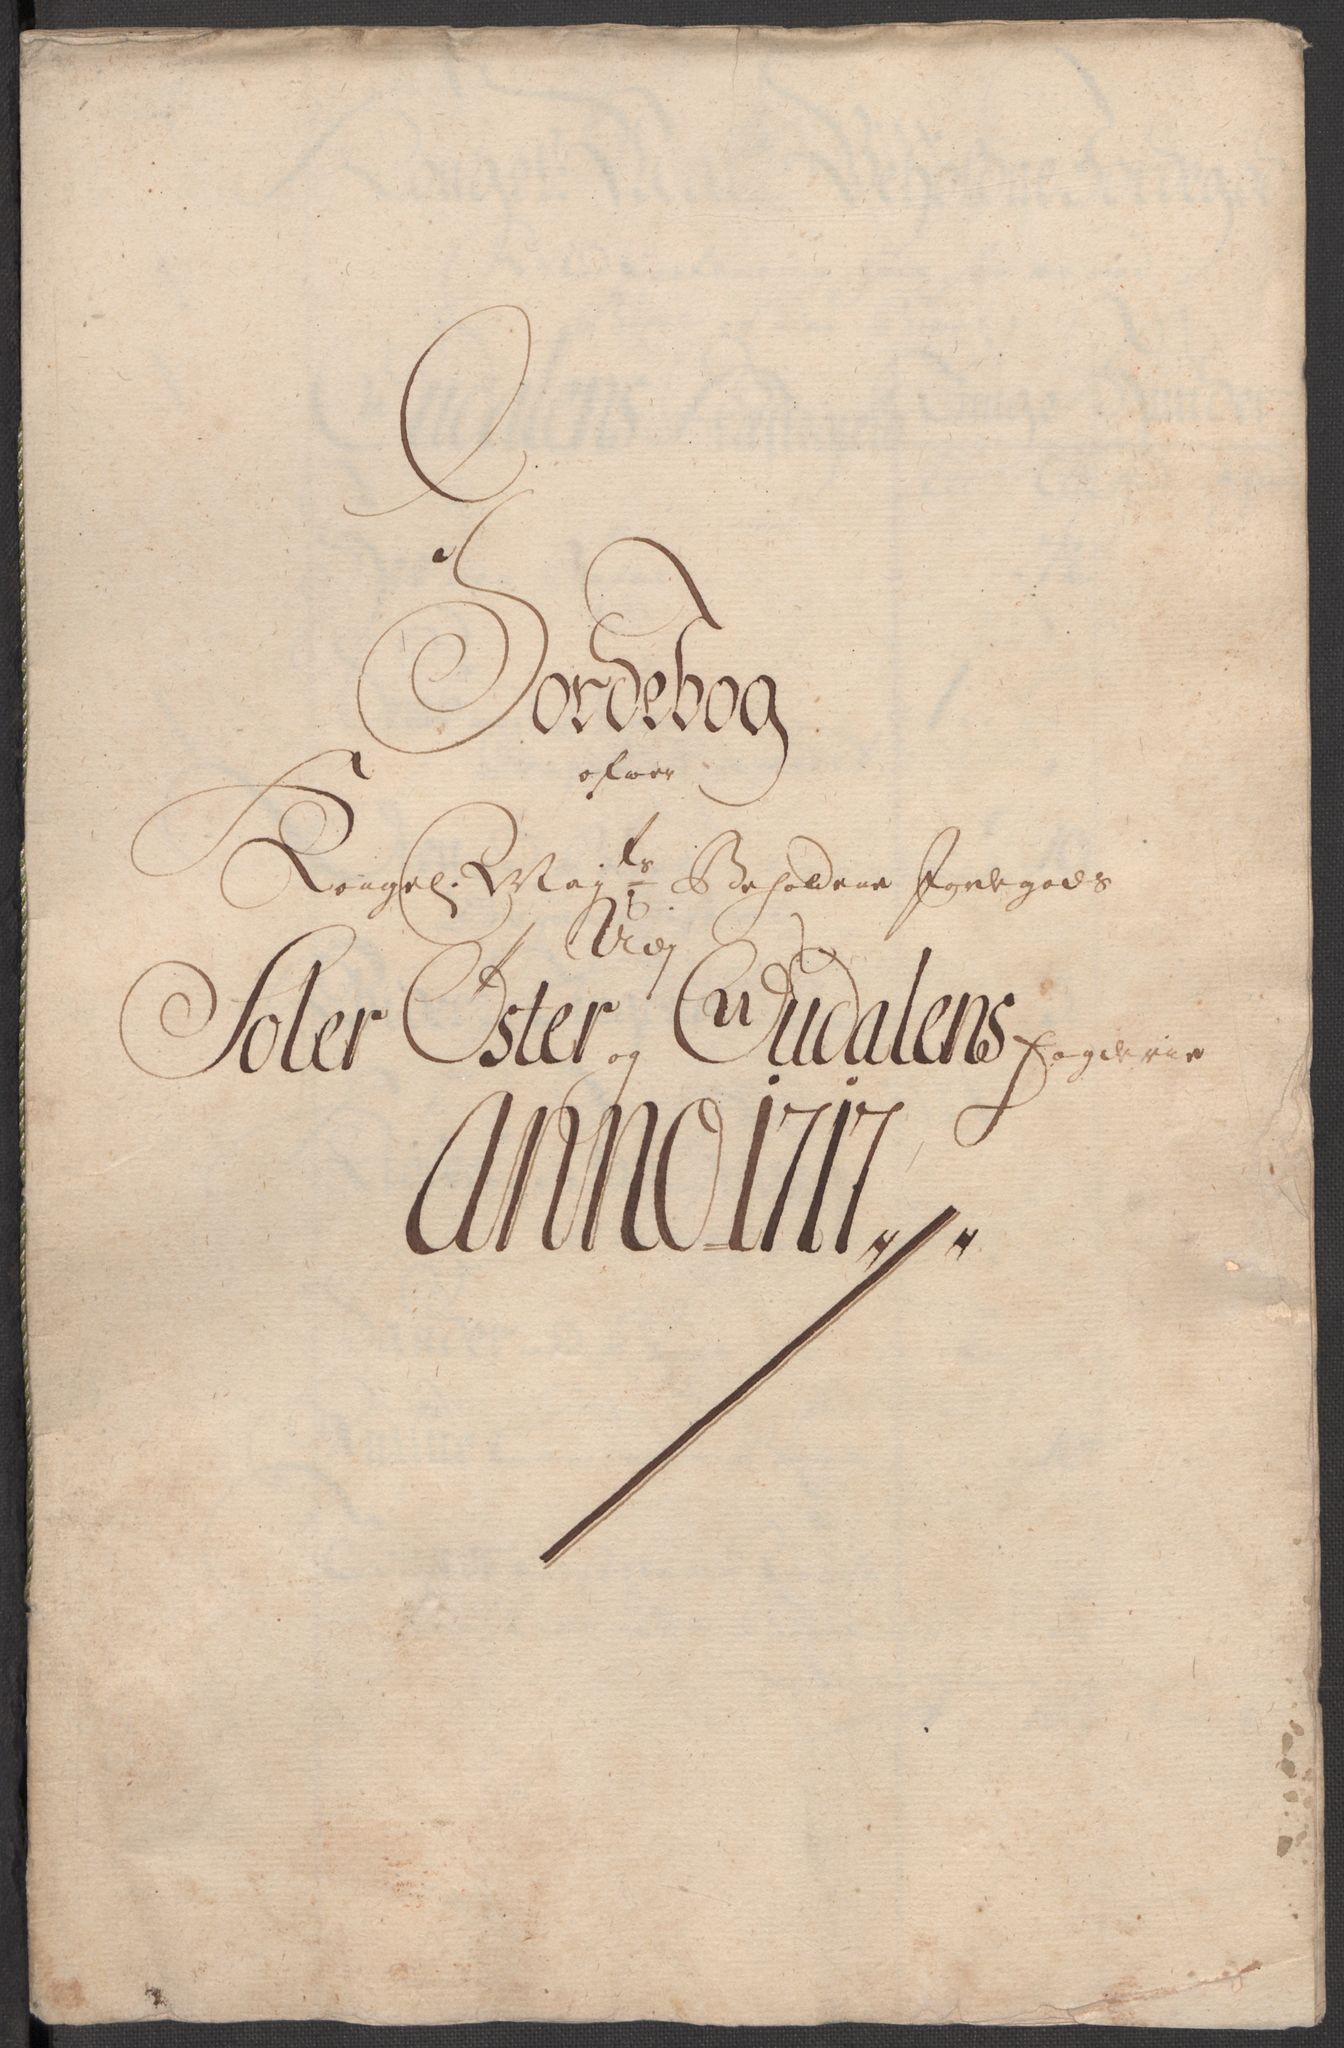 Jordebog
ofwer
Kongel. Maytz Beholdene Jordegods
Udj
Soler Øster og Gudalens fogderie
Anno 1717